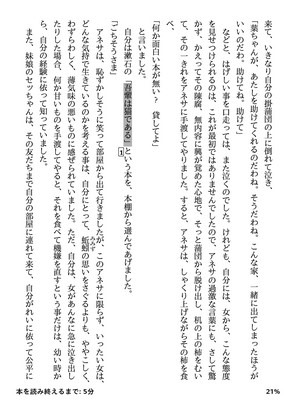 来て、いきなり自分の掛蒲団の上に倒れて泣き、
「葉ちゃんが、あたしを助けてくれるのだわね。そうだわね。こんな家、一緒に出てしまったほうが
いいのだわ。助けてね。助けて」
などと、はげしい事を口走っては、また泣くのでした。けれども、自分には、女から、こんな態度
を見せつけられるのは、これが最初ではありませんでしたので、アネサの過激な言葉にも、さして驚
かず、かえってその陳腐、無内容に興が覚めた心地で、そっと蒲団から脱け出し、机の上の柿をむい
て、その一きれをアネサに手渡してやりました。すると、アネサは、しゃくり上げながらその柿を食
べ、
「何か面白い本が無い？　貸してよ」
と言いました。
自分は漱石の「吾輩は猫である」という本を、本棚から選んであげました。
1
「ごちそうさま」
アネサは、恥ずかしそうに笑って部屋から出て行きましたが、このアネサに限らず、いったい女は、
どんな気持で生きているのかを考える事は、自分にとって、蚯蚓の思いをさぐるよりも、ややこしく、
みみず
わずらわしく、薄気味の悪いものに感ぜられていました。ただ、自分は、女があんなに急に泣き出し
たりした場合、何か甘いものを手渡してやると、それを食べて機嫌を直すという事だけは、幼い時か
ら、自分の経験に依って知っていました。
また、妹娘のセッちゃんは、その友だちまで自分の部屋に連れて来て、自分がれいに依って公平に
本を読み終えるまで: 5分
21%